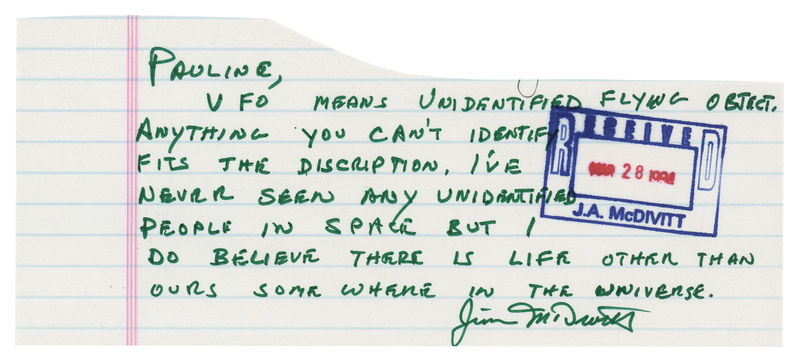 PAULINE,
UFO MEANS UNIDENTIFIED FLYING OBJECT.
ANYTHING YOU CAN'T IDENTIFY
FITS THE DISCRIPTION. I'VE
NEVER SEEN ANY UNIDENTIFIED
PEOPLE IN SPACE BUT I
DO BELIEVE THERE IS LIFE OTHER THAN
OURS SOMEWHERE IN THE UNIVERSE.
Jim McDivitt
RECEIVED
MAR 28
J.A. McDIVITT